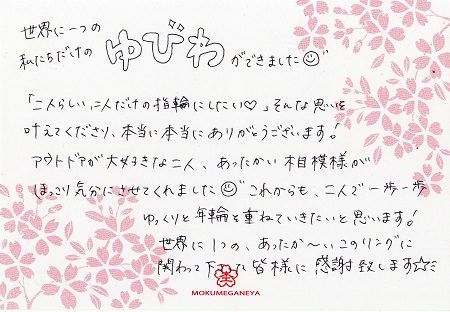 世界に一つの
私たちだけの ゆびわ ができました
「二人らしい、二人だけの指輪にしたい♡」そんな思いを
叶えてくださり、本当に本当にありがとうございます!
アウトドアが大好きな二人、あったかい木目模様が
ほっこり気分にさせてくれました これからも、二人で一歩一歩
ゆっくりと年輪を重ねていきたいと思います!
世界に1つの、あったか〜いこのリングに
関わって下さった皆様に感謝致します☆
MOKUMEGANEYA